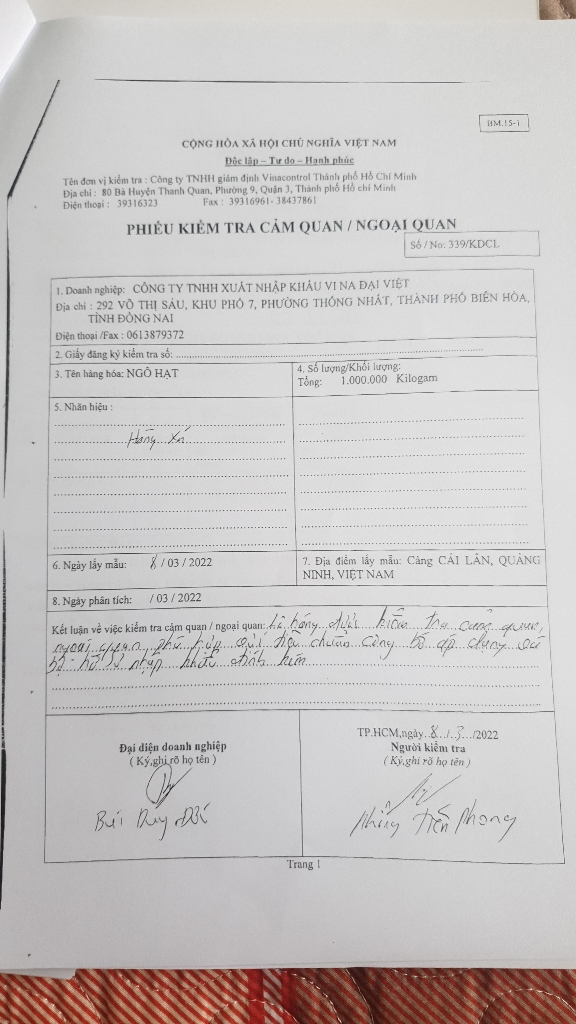 BM.15-1
CỘNG HÒA XÃ HỘI CHỦ NGHĨA VIỆT NAM
Độc lập – Tự do – Hạnh phúc
Tên đơn vị kiểm tra : Công ty TNHH giám định Vinacontrol Thành phố Hồ Chí Minh
Địa chỉ : 80 Bà Huyện Thanh Quan, Phường 9, Quận 3, Thành phố Hồ chí Minh
Điện thoại : 39316323 Fax : 39316961- 38437861
PHIẾU KIỂM TRA CẢM QUAN / NGOẠI QUAN
Số / No: 339/KDCL
1. Doanh nghiệp: CÔNG TY TNHH XUẤT NHẬP KHẨU VI NA ĐẠI VIỆT
Địa chỉ : 292 VÕ THỊ SÁU, KHU PHỐ 7, PHƯỜNG THỐNG NHẤT, THÀNH PHỐ BIÊN HÒA,
TỈNH ĐỒNG NAI
Điện thoại /Fax : 0613879372
2. Giấy đăng ký kiểm tra số:
3. Tên hàng hóa: NGÔ HẠT
4. Số lượng/Khối lượng:
Tổng: 1.000.000 Kilogam
5. Nhãn hiệu :
Hàng Xá
6. Ngày lấy mẫu: 8 / 03 / 2022
7. Địa điểm lấy mẫu: Cảng CÁI LÂN, QUẢNG
NINH, VIỆT NAM
8. Ngày phân tích: / 03 / 2022
Kết luận về việc kiểm tra cảm quan / ngoại quan: Lô hàng được kiểm tra cảm quan,
ngoại quan phù hợp với tiêu chuẩn công bố áp dụng và
bộ hồ sơ nhập khẩu đính kèm
TP.HCM,ngày 8 / 3 /2022
Đại diện doanh nghiệp
( Ký,ghi rõ họ tên )
Người kiểm tra
( Ký,ghi rõ họ tên )
Bùi Duy Đức
Phùng Tiến Phong
Trang 1